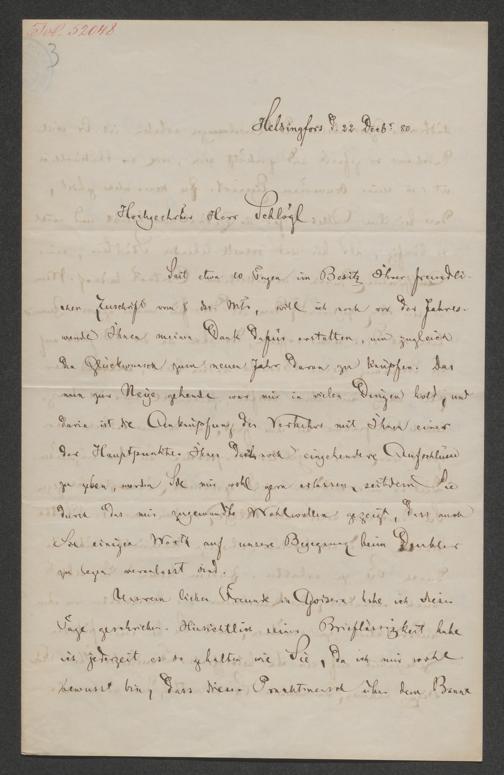 Ivl. 52048
3
Helsingfors d. 22 Decbr 80
Hochgeehrter Herr Schlögl
Seit etwa 10 Tagen im Besitz Ihrer freundli-
chen Zuschrift vom 8 des Mts, will ich noch vor der Jahres-
wende Ihnen meinen Dank dafür erstatten, um zugleich
den Glückwunsch zum neuen Jahr daran zu knüpfen. Das
nun zur Neige gehende war mir in vielen Dingen hold, und
darin ist die Anknüpfung des Verkehrs mit Ihnen einer
der Hauptpunkte. Ihnen noch eingehendere Aufschlüsse
zu geben, werden Sie mir wohl gern erlassen, seitdem Sie
durch das mir zugewandte Wohlwollen gezeigt, dass auch
Sie einigen Werth auf unsere Begegnung beim
zu legen veranlasst sind.
Unserem lieben Freunde in Goisern habe ich dieser
Tage geschrieben. Hinsichtlich seiner Brieflässigkeit habe
ich jederzeit es so gehalten wie Sie, da ich mir wohl
bewusst bin, dass dieser Prachtmensch über dem Banne